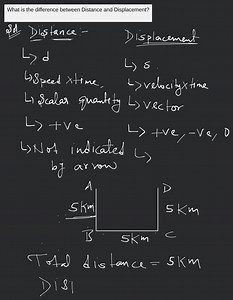 What is the difference between Distance and Displacement?
Sol Distance :- Displacement
↳ d ↳ s
↳ Speed x time ↳ velocity x time
↳ Scalar quantity ↳ vector
↳ +ve ↳ +ve, -ve, 0
↳ Not indicated ↳
by arrow
A D
5 Km 5 Km
B 5 Km C
Total distance = 5 Km
D|S|